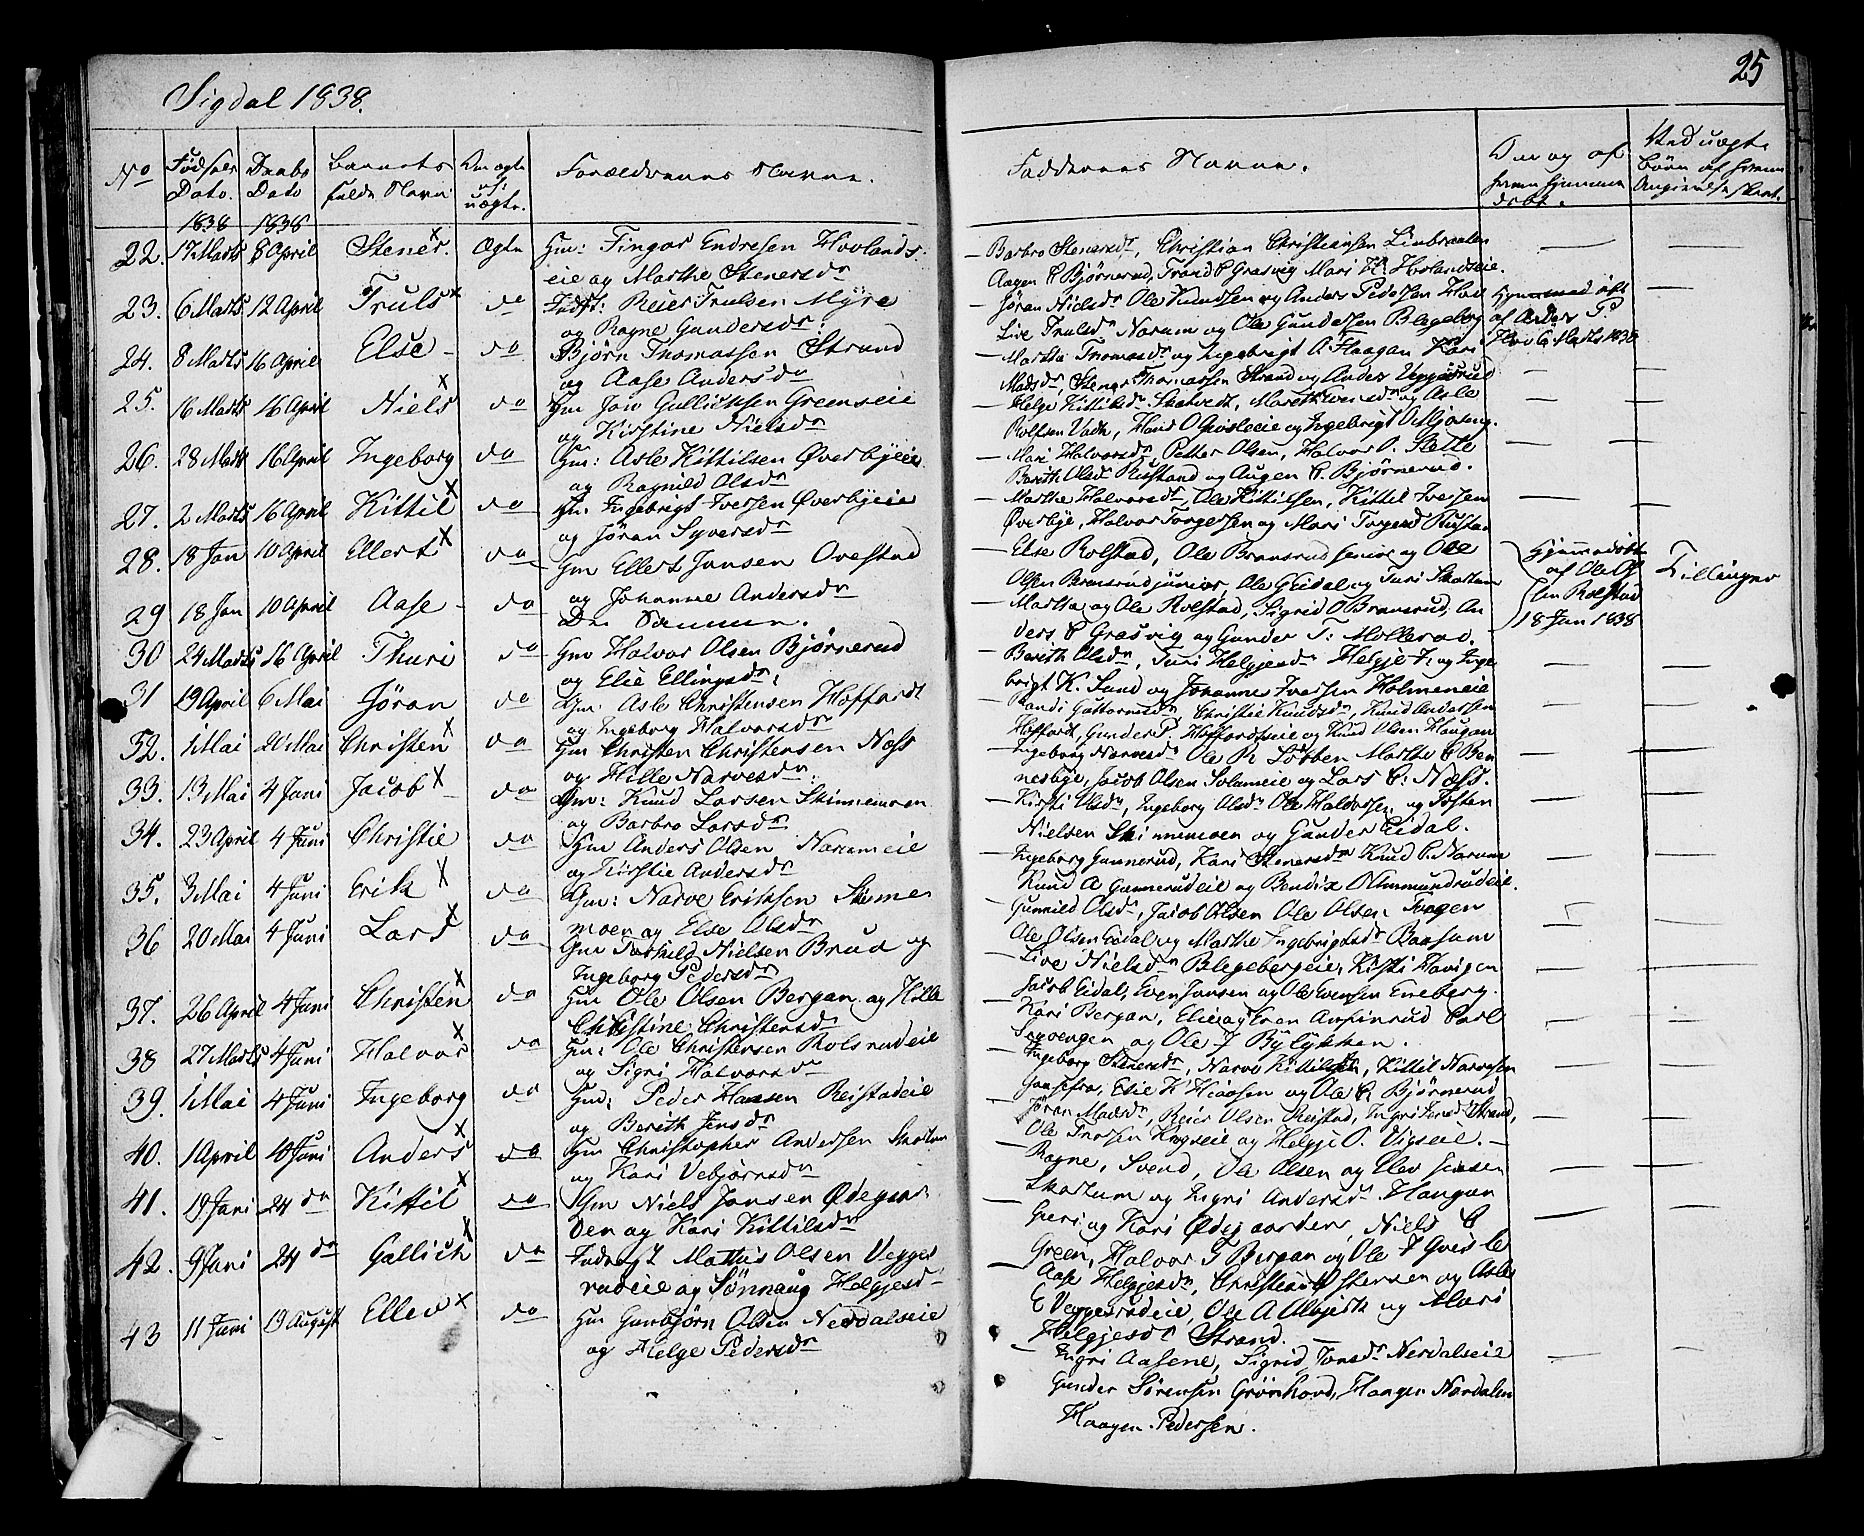 Sigdal 1838.
25
No Fødsels Dato. Daabs Dato Barnets fulde Navn. Om ægte el. uægte. Forældrenes Navne.
Faddernes Navne. Om og af hvem hjemmedøbt. Ved uægte Børn af hvem Angivelse skeet.
1838 1838
22. 17 Marts 8 April Stener. Ægte Gm: Fingar Endresen Hovlands-
eie og Marthe Stenersdr
23. 6 Marts 12 April Truls do Indst. Reier Trulsen Myre
og Ragne Gundersdr.
24. 8 Marts 16 April Else do Bjørn Thomassen Strand
og Aase Andersdr
25. 16 Marts 16 April Niels do Gm Jon Gullichsen Greenseie
og Kirstine Nielsdr
26. 28 Marts 16 April Ingeborg do Gm: Asle Kittilsen Øverbyeie
og Ragnild Olsdr
27. 2 Marts 16 April Kittil do Gm: Ingebrigt Iversen Øverbyeie
og Jøran Syversdr
28. 18 Jan 10 April Ellert do Gm Ellert Jansen Ovestad
og Johanne Andersdr
29 18 Jan 10 April Aase do De Samme.
30 24 Marts 16 April Thuri do Gm Halvor Olsen Bjørnerud
og Elie Ellingsdr:
31 19 April 6 Mai Jøran do Gm: Asle Christensen Hoffardt
og Ingeborg Halvorsdr
32. 1 Mai 20 Mai Christen do Gm Christen Christensen Næss
og Hille Narvesdr:
33. 13 Mai 4 Juni Jacob do Gm: Knud Larsen Skinnemoen
og Barbro Larsdr
34. 23 April 4 Juni Christie do Gm Anders Olsen Narumeie
og Kirstie Andersdr
35. 3 Mai 4 Juni Erik do Gm: Narve Eriksen Skinne
moen og Else Olsdr
36 20 Mai 4 Juni Lars do Gm Torkild Nielsen Brua og
Ingeborg Pedersdr
37. 26 April 4 Juni Christen do Gm Ole Olsen Bergan og Hille
Christine Christensdr
38 27 Marts 4 Juni Halvor do Gm: Ole Christensen Rolsrudeie
og Sigri Halvorsdr
39. 1 Mai 4 Juni Ingeborg do Gm: Peder Hansen Reistadeie
og Berith Jensdr
40. 1 April 10 Juni Anders do Gm Christopher Andersen Skatum
og Kari Vebjørnsdr
41. 19 Juni 24 do Kittil do Gm Niels Jansen Ødegaar-
den og Kari Kittilsdr
42. 9 Juni 24 do Gullich do Inderst Mattis Olsen Vegges
rudeie og Sønnaug Helgjesdr
43 11 Juni 19 August Ellev do Gm Gunbjørn Olsen Nerdalseie
og Helge Pedersdr
Barbro Stenersdr, Christian Christiansen Linbraaten
Aagen C Bjørnerud, Trond C Grasvig Mari Hovlandseie.
Jøran Nielsdr Ole Knudsen og Anders Pedersen Hov
Live Trulsdr Narum og Ole Gundersen Blegeberg
Hjemmedøbt af Anders P Hov 6 Marts 1838
Martha Thomasdr og Ingebrigt A. Haagan Kari
Madsdr Stener Thomassen Strand og Anders Veggesrud
Helge Kittilsdr Skatvedt, Mareth Iversdr og Asle
Mari Halvorsdr, Petter Olsen, Halvor O. Slette
Berith Olsdr Rustand og Aagen C. Bjørnerud.
Marthe Halvorsdr, Ole Kittilsen, Kittil Iversen
Øverbye, Halvor Torgersen og Mari Torgersd Rustan
Else Rolstad, Ole Bransrud senior og Ole
Olsen Bransrud junior, Ole G Eidal og Turi Skartum
Martha og Ole Rolstad, Sigrid O Bransrud, An
ders C Grasvig og Gunder T. Mollerud.
Hjemmedøbt af Ole Ol sen Rolstad 18 Jan 1838
Tillinger
Berith Olsdr, Turi Helgjesdr Helgje T. og Inge
brigt K. Sand og Johannes Iversen Holmeneie
Randi Guttormsdr Christie Knudsdr, Knud Andersen
Hoffart, Gunder P. Hoffardtseie og Knud Olsen Haugan
Ingeborg Narvesdr Ole R Lobben Marthe C Ben
nesbye, Jacob Olsen Solumeie og Lars C: Næss.
Kirsti Olsdr, Ingeborg Olsdr Ole Halvorsen og Tosten
Nielsen Skinnemoen og Gunder Eidal.
Ingeborg Gunnerud, Kari Stenersdr Knud P. Narum
Knud A Gunnerudeie og Bendix O Ammundrudeie.
Gunnild Olsdr, Jacob Olsen Ole Olsen
Ole Olsen Eidal og Marthe Ingebrigtsdr Baasum
Live Nielsdr Blegebergeie, Kisti Havigen
Jacob Eidal, Even Jansen og Ole Evensen Eneberg.
Kari Bergan, Elie og Even Amfinrud
og Ole J Bylykken.
Ingeborg Stenersdr, Narve Kittilsen, Kittil Narvesen
Elie K Haasen og Ole C Bjørnerud
Jøran Madsdr, Reier Olsen Reistad, Ingri Strand,
Ole og Helgje O. Vigseie.
Ragne, Svend, Ole Olsen og Elev Jensen
Skartum og Ingri Andersdr Haugan
Guri og Kari Ødegaarden, Niels C
Green, Halvor T Bergan og Ole T Qvisle
Aase Helgjesdr, Christian Østensen og Asle
C Veggesrudeie Ole A og Mari
Helgjesdr Strand.
Ingri Aasene, Sigrid Tonsdr Nerdalseie
Gunder Sørensen Grønhovd, Haagen Nerdalen
Haagen Pedersen.